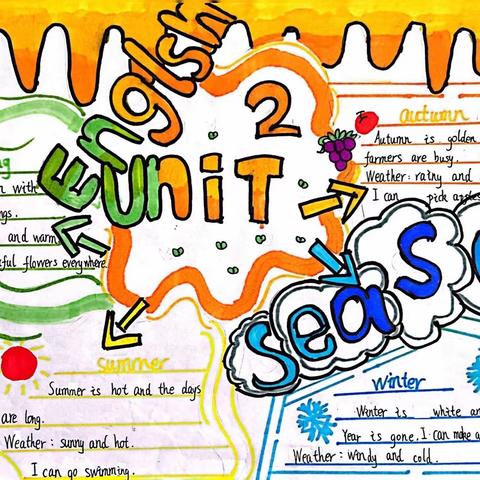 English
2
UniT
g
n with
gs.
and warm
ful flowers everywhere.
autumn
Autumn is golden
farmers are busy.
Weather: rainy and
I can pick apples
seas
summer
Summer is hot and the days
are long.
Weather: sunny and hot.
I can go swimming.
winter
Winter is white an
Year is gone. I can make a
Weather: windy and cold.